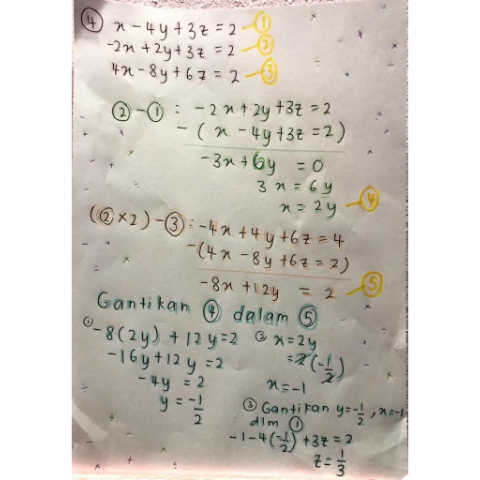 ④ x - 4y + 3z = 2 - ①
-2x + 2y + 3z = 2 - ②
4x - 8y + 6z = 2 - ③
② - ① : - 2x + 2y + 3z = 2
- ( x - 4y + 3z = 2 )
- 3x + 6y = 0
3x = 6y
x = 2y - ④
(② × 2) - ③ : - 4x + 4y + 6z = 4
- (4x - 8y + 6z = 2)
-8x + 12y = 2 - ⑤
Gantikan ④ dalam ⑤
① -8(2y) + 12y = 2
-16y + 12y = 2
-4y = 2
y = -1/2
② x = 2y
= 2(-1/2)
x = -1
③ Gantikan y = -1/2, x = -1
dlm ①
-1 - 4(-1/2) + 3z = 2
z = 1/3